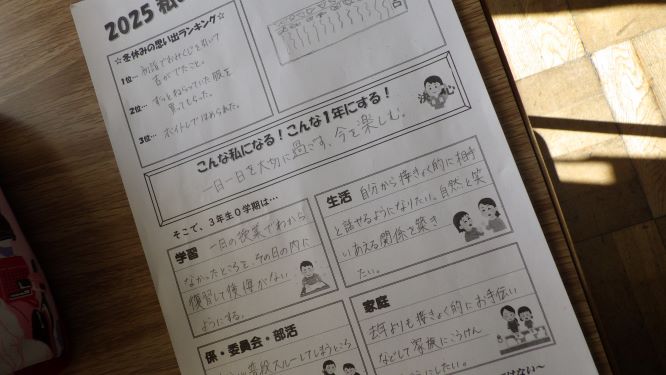 2025 私
☆冬休みの思い出ランキング☆
1位… 初詣でおみくじを引いて
吉がでたこと。
2位… ずっとねらっていた服を
買ってもらった。
3位… ボイトレでほめられた。
こんな私になる!こんな1年にする!
一日一日を大切に過ごす、今を楽しむ。
決心
そこで、3年生0学期は…
学習 一日の授業でわから
なかったところを、その日の内に
復習して後悔がない
ようにする。
生活 自分から積きょく的に相手
と話せるようになりたい。自然と笑
いあえる関係を築き
たい。
係・委員会・部活
普段スルーしてしまうところ
家庭
去年よりも積きょく的にお手伝い
などして家族にこうけん
したい。
はない～